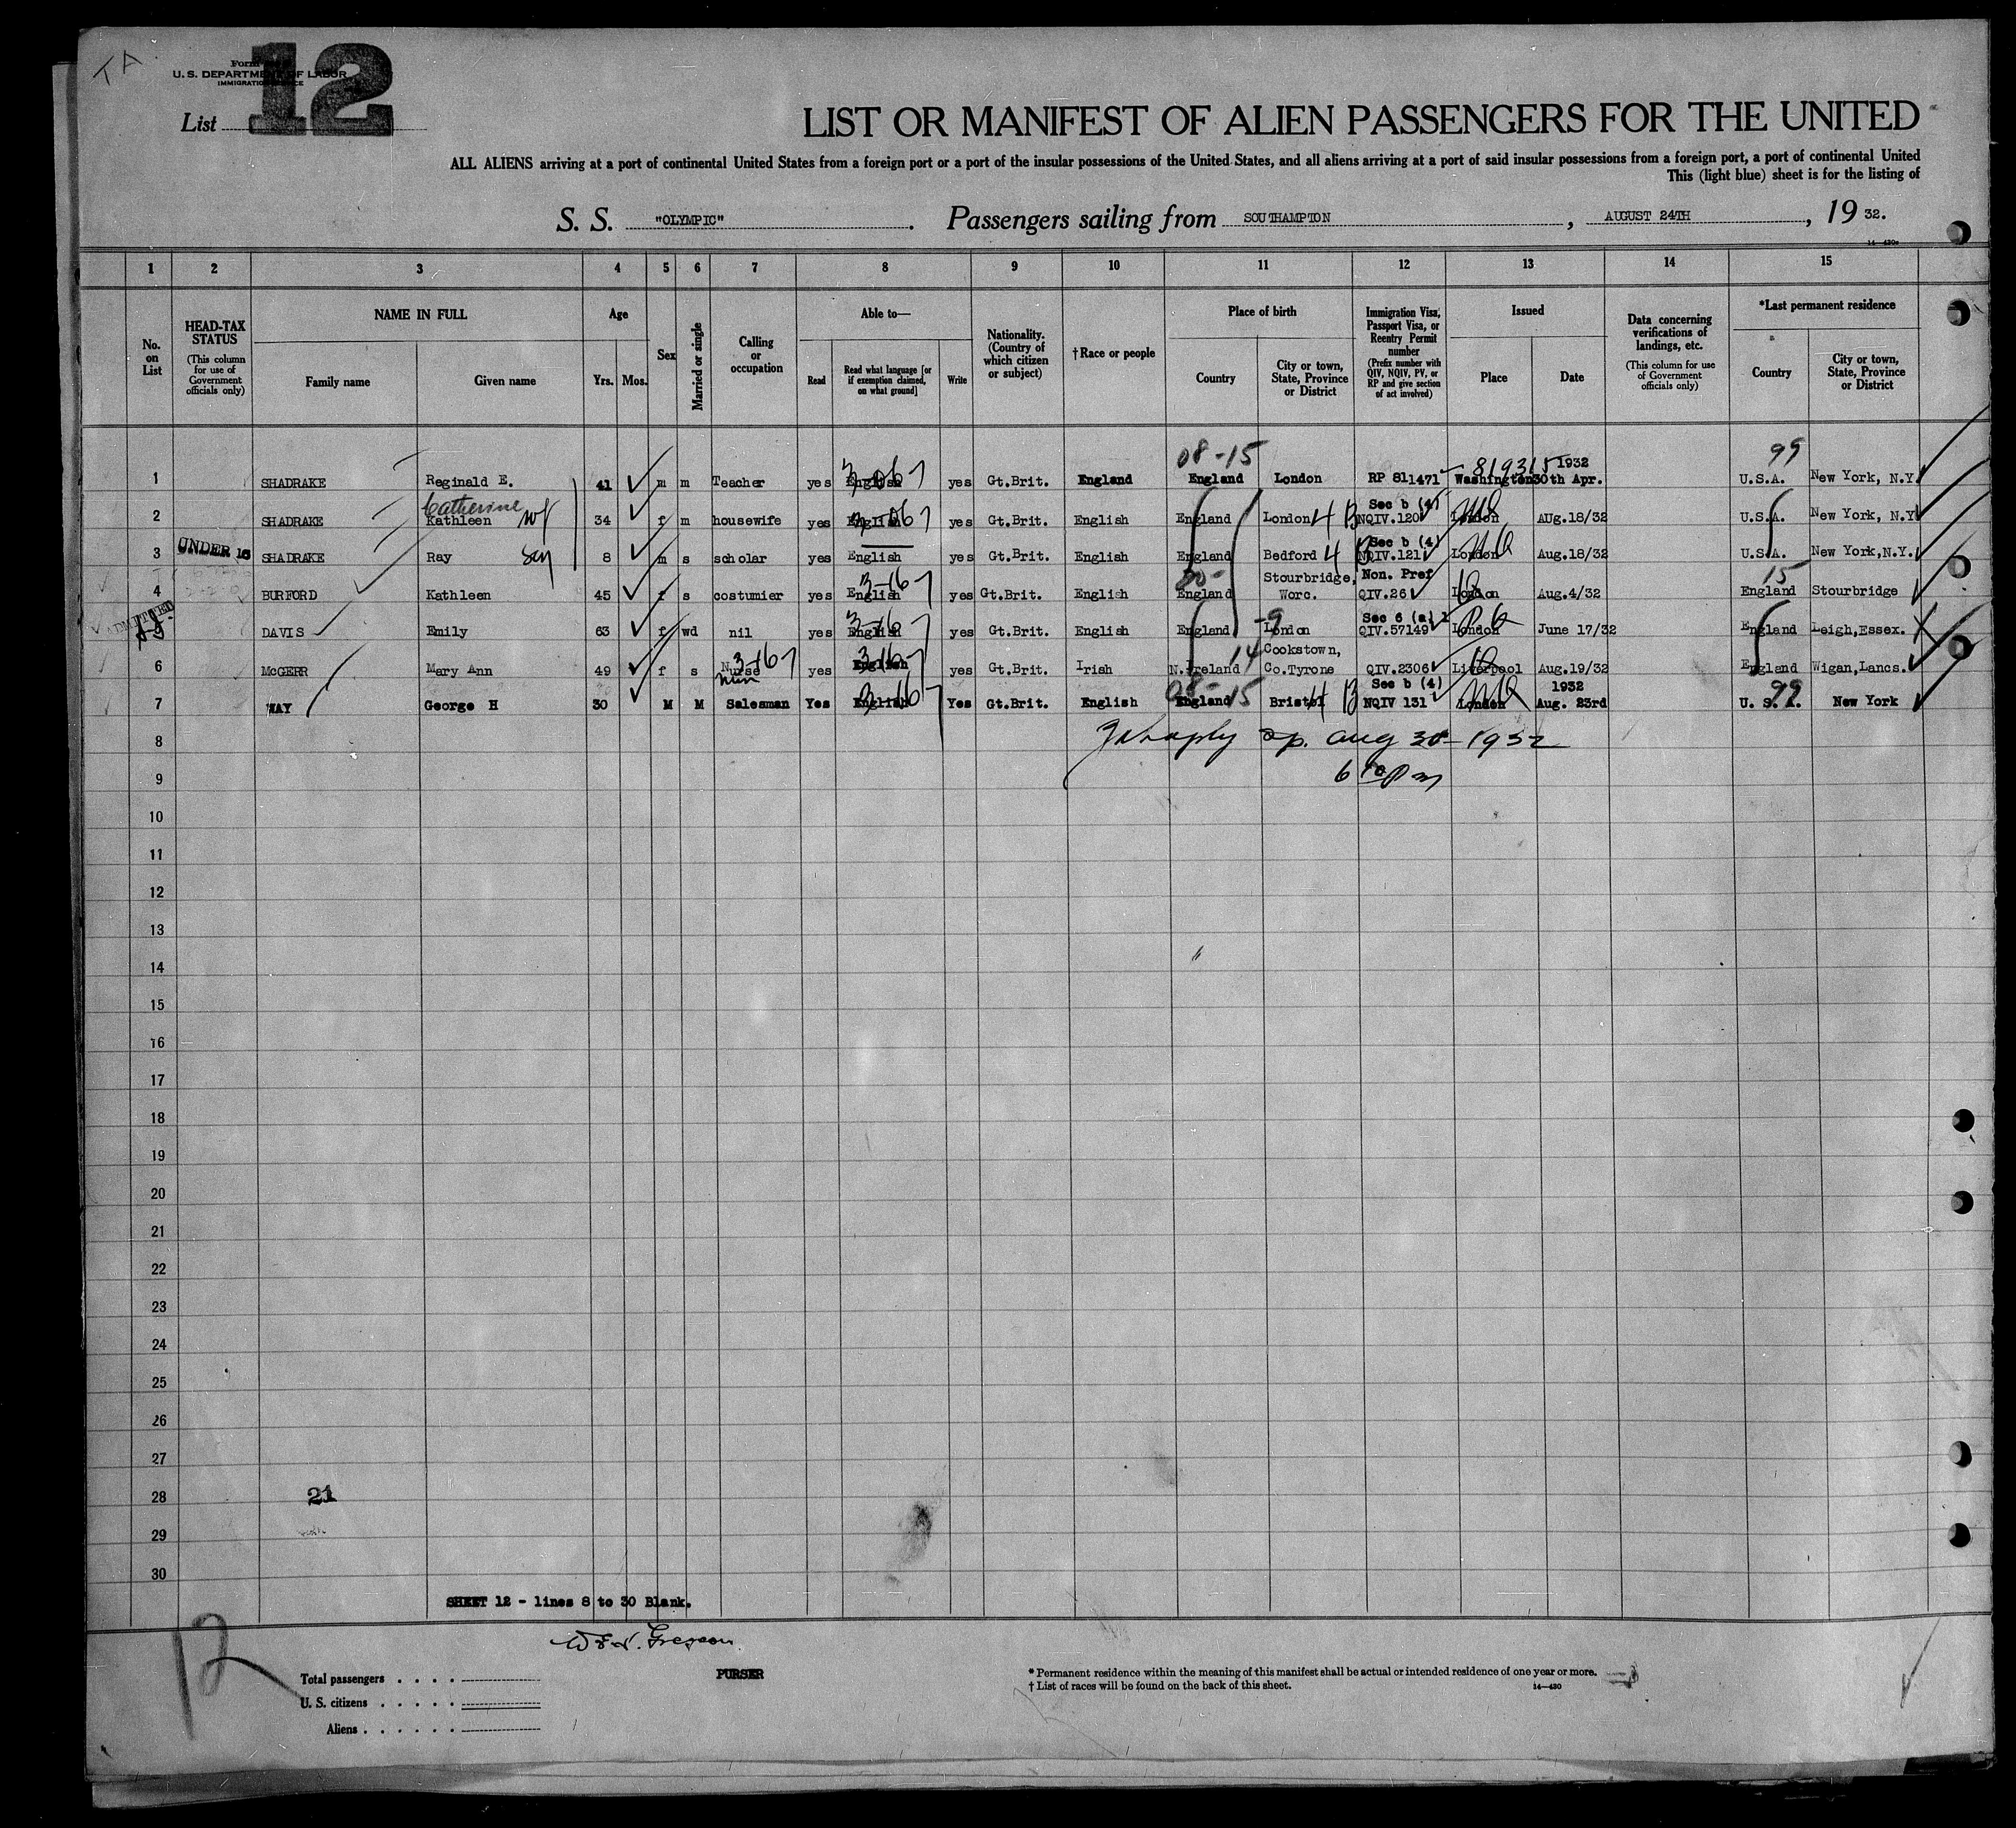 TA
Form
U. S. DEPARTMENT OF LABOR
IMMIGRATION SERVICE
List 12
LIST OR MANIFEST OF ALIEN PASSENGERS FOR THE UNITED
ALL ALIENS arriving at a port of continental United States from a foreign port or a port of the insular possessions of the United States, and all aliens arriving at a port of said insular possessions from a foreign port, a port of continental United
This (light blue) sheet is for the listing of
S. S. "OLYMPIC". Passengers sailing from SOUTHAMPTON, AUGUST 24TH, 19 32.
1 2 3 4 5 6 7 8 9 10 11 12 13 14 15
No. on List
HEAD-TAX STATUS (This column for use of Government officials only)
NAME IN FULL Family name Given name
Age Yrs. Mos.
Sex
Married or single
Calling or occupation
Able to— Read Read what language [or if exemption claimed, on what ground] Write
Nationality. (Country of which citizen or subject)
†Race or people
Place of birth Country City or town, State, Province or District
Immigration Visa, Passport Visa, or Reentry Permit number (Prefix number with QIV, NQIV, PV, or RP and give section of act involved)
Issued Place Date
Data concerning verifications of landings, etc. (This column for use of Government officials only)
*Last permanent residence Country City or town, State, Province or District
08-15 819315 1932 99
1 SHADRAKE Reginald E. 41 m m Teacher yes English yes Gt.Brit. England England London RP 811471 Washington 30th Apr. U.S.A. New York, N.Y.
Catherine Sec b (4)
2 SHADRAKE Kathleen wf 34 f m housewife yes English yes Gt.Brit. English England London 4 B NQIV.120 London AUg.18/32 U.S.A. New York, N.Y.
UNDER 16 Sec b (4)
3 SHADRAKE Ray 8 m s scholar yes English yes Gt.Brit. English England Bedford 4 NQIV.121 London Aug.18/32 U.S.A. New York,N.Y.
Stourbridge, Non. Pref 15
4 BURFORD Kathleen 45 f s costumier yes English yes Gt.Brit. English England Worc. QIV.26 London Aug.4/32 England Stourbridge
ADMITTED Sec 6 (a) 1
5 DAVIS Emily 63 f wd nil yes English yes Gt.Brit. English England London QIV.57149 London June 17/32 England Leigh,Essex.
3-167 14 Cookstown,
6 McGERR Mary Ann 49 f s Nurse yes English yes Gt.Brit. Irish N.Ireland Co.Tyrone QIV.2306 Liverpool Aug.19/32 England Wigan,Lancs.
08- 15 Sec b (4) 1932 99
7 WAY George H 30 M M Salesman Yes English Yes Gt.Brit. English England Bristol 4 B NQIV 131 London Aug. 23rd U. S. A. New York
8 Aug 30-1932
9
10
11
12
13
14
15
16
17
18
19
20
21
22
23
24
25
26
27
28 21
29
30
SHEET 12 - lines 8 to 30 Blank.
12
PURSER
Total passengers . . . .
U. S. citizens . . . . .
Aliens . . . . . .
* Permanent residence within the meaning of this manifest shall be actual or intended residence of one year or more.
† List of races will be found on the back of this sheet.
14—430